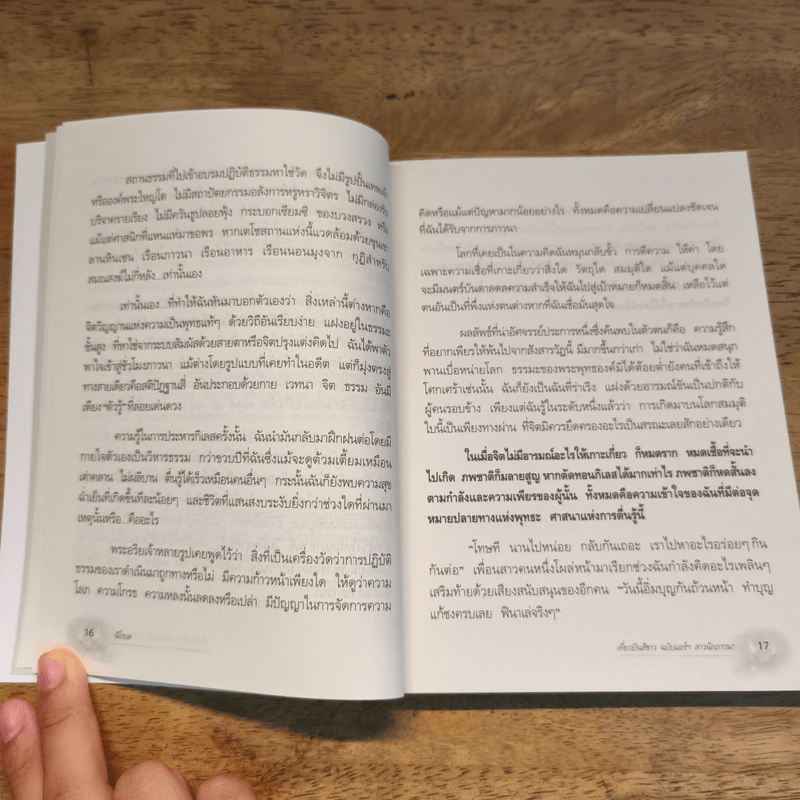 สถานธรรมที่ไปเข้าอบรมปฏิบัติธรรมหาใช่วัด จึงไม่มีรูปปั้นเทพเจ้า
หรือองค์พระใหญ่โต ไม่มีสถาปัตยกรรมอลังการหรูหราวิจิตร ไม่มีกล่องรับ
บริจาครายเรียง ไม่มีควันธูปลอยฟุ้ง กระบอกเซียมซี ของบวงสรวง หรือ
แม้แต่ศาสนิกที่แหนแห่มาขอพร หากเตโชสถานแห่งนี้แวดล้อมด้วยขุนเขา
ลานหินเซน เรือนภาวนา เรือนอาหาร เรือนนอนมุงจาก กุฏิสำหรับ
สมณสงฆ์ไม่กี่หลัง...เท่านั้นเอง
เท่านั้นเอง...ที่ทำให้ฉันหันมาบอกตัวเองว่า สิ่งเหล่านี้ต่างหากคือ
จิตวิญญาณแห่งความเป็นพุทธแท้ๆ ด้วยวิถีอันเรียบง่าย แฝงอยู่ในธรรมะ
ชั้นสูง ที่หาใช่จากระบบสัมผัสด้วยสายตาหรือจิตปรุงแต่งคิดไป ฉันได้พาตัว
พาใจเข้าสู่ชั่วโมงภาวนา แม้ต่างโดยรูปแบบที่เคยทำในอดีต แต่ก็มุ่งตรงสู่
ทางสายเดียวคือสติปัฏฐานสี่ อันประกอบด้วยกาย เวทนา จิต ธรรม อันมี
เพียง “ตัวรู้” ที่ลอยเด่นดวง
ความรู้ในการประหารกิเลสครั้งนั้น ฉันนำมันกลับมาฝึกฝนต่อโดยมี
กายใจตัวเองเป็นวิหารธรรม กว่าขวบปีที่ฉันซึ่งแม้จะดูต้วมเตี้ยมเหมือน
เต่าคลาน ไม่ผลิบาน ตื่นรู้ได้เร็วเหมือนคนอื่นๆ กระนั้นฉันก็ยังพบความสุข
ฉ่ำเย็นที่เกิดขึ้นทีละน้อยๆ และชีวิตที่แสนสงบระงับยิ่งกว่าช่วงใดที่ผ่านมา
เหตุนั้นหรือ...คืออะไร
พระอริยเจ้าหลายรูปเคยพูดไว้ว่า สิ่งที่เป็นเครื่องวัดว่าการปฏิบัติ
ธรรมของเราดำเนินมาถูกทางหรือไม่ มีความก้าวหน้าเพียงใด ให้ดูว่าความ
โลภ ความโกรธ ความหลงนั้นลดลงหรือเปล่า มีปัญญาในการจัดการความ
16
คิดหรือแม้แต่ปัญหามากน้อยอย่างไร ทั้งหมดคือความเปลี่ยนแปลงชัดเจน
ที่ฉันได้รับจากการภาวนา
โลกที่เคยเป็นในความคิดฉันหมุนกลับขั้ว การตีความ ให้ค่า โดย
เฉพาะความเชื่อที่เกาะเกี่ยวว่าสิ่งใด วัตถุใด สมมุติใด แม้แต่บุคคลใด
จะมีมนตร์บันดาลดลความสำเร็จให้ฉันไปสู่เป้าหมายก็หมดสิ้น เหลือไว้แต่
ตนอันเป็นที่พึ่งแห่งตนต่างหากที่ฉันเชื่อมั่นสุดใจ
ผลลัพธ์ที่น่าอัศจรรย์ประการหนึ่งซึ่งค้นพบในตัวตนก็คือ ความรู้สึก
ที่อยากเพียรให้พ้นไปจากสังสารวัฏนี้ มีมากขึ้นกว่าเก่า ไม่ใช่ว่าฉันหมดสนุก
พานเบื่อหน่ายโลก ธรรมะของพระพุทธองค์มิได้ต้อยต่ำยังคนที่เข้าถึงให้
โศกเศร้าเช่นนั้น ฉันก็ยังเป็นฉันที่ร่าเริง แฝงด้วยอารมณ์ขันเป็นปกติกับ
ผู้คนรอบข้าง เพียงแต่ฉันรู้ในระดับหนึ่งแล้วว่า การเกิดมาบนโลกสมมุติ
ใบนี้เป็นเพียงทางผ่าน ที่จิตมิควรยึดครองอะไรเป็นสรณะเลยสักอย่างเดียว
ในเมื่อจิตไม่มีอารมณ์อะไรให้เกาะเกี่ยว ก็หมดราก หมดเชื้อที่จะนำ
ไปเกิด ภพชาติก็มลายสูญ หากตัดทอนกิเลสได้มากเท่าไร ภพชาติก็หดสั้นลง
ตามกำลังและความเพียรของผู้นั้น ทั้งหมดคือความเข้าใจของฉันที่มีต่อจุด
หมายปลายทางแห่งพุทธะ ศาสนาแห่งการตื่นรู้นี้
“โทษที นานไปหน่อย กลับกันเถอะ เราไปหาอะไรอร่อยๆ กิน
กันต่อ” เพื่อนสาวคนหนึ่งโผล่หน้ามาเรียกช่วงฉันกำลังคิดอะไรเพลินๆ
เสริมท้ายด้วยเสียงสนับสนุนของอีกคน “วันนี้อิ่มบุญกันถ้วนหน้า ทำบุญ
แก้ชงครบเลย ฟินาเล่จริงๆ”
17